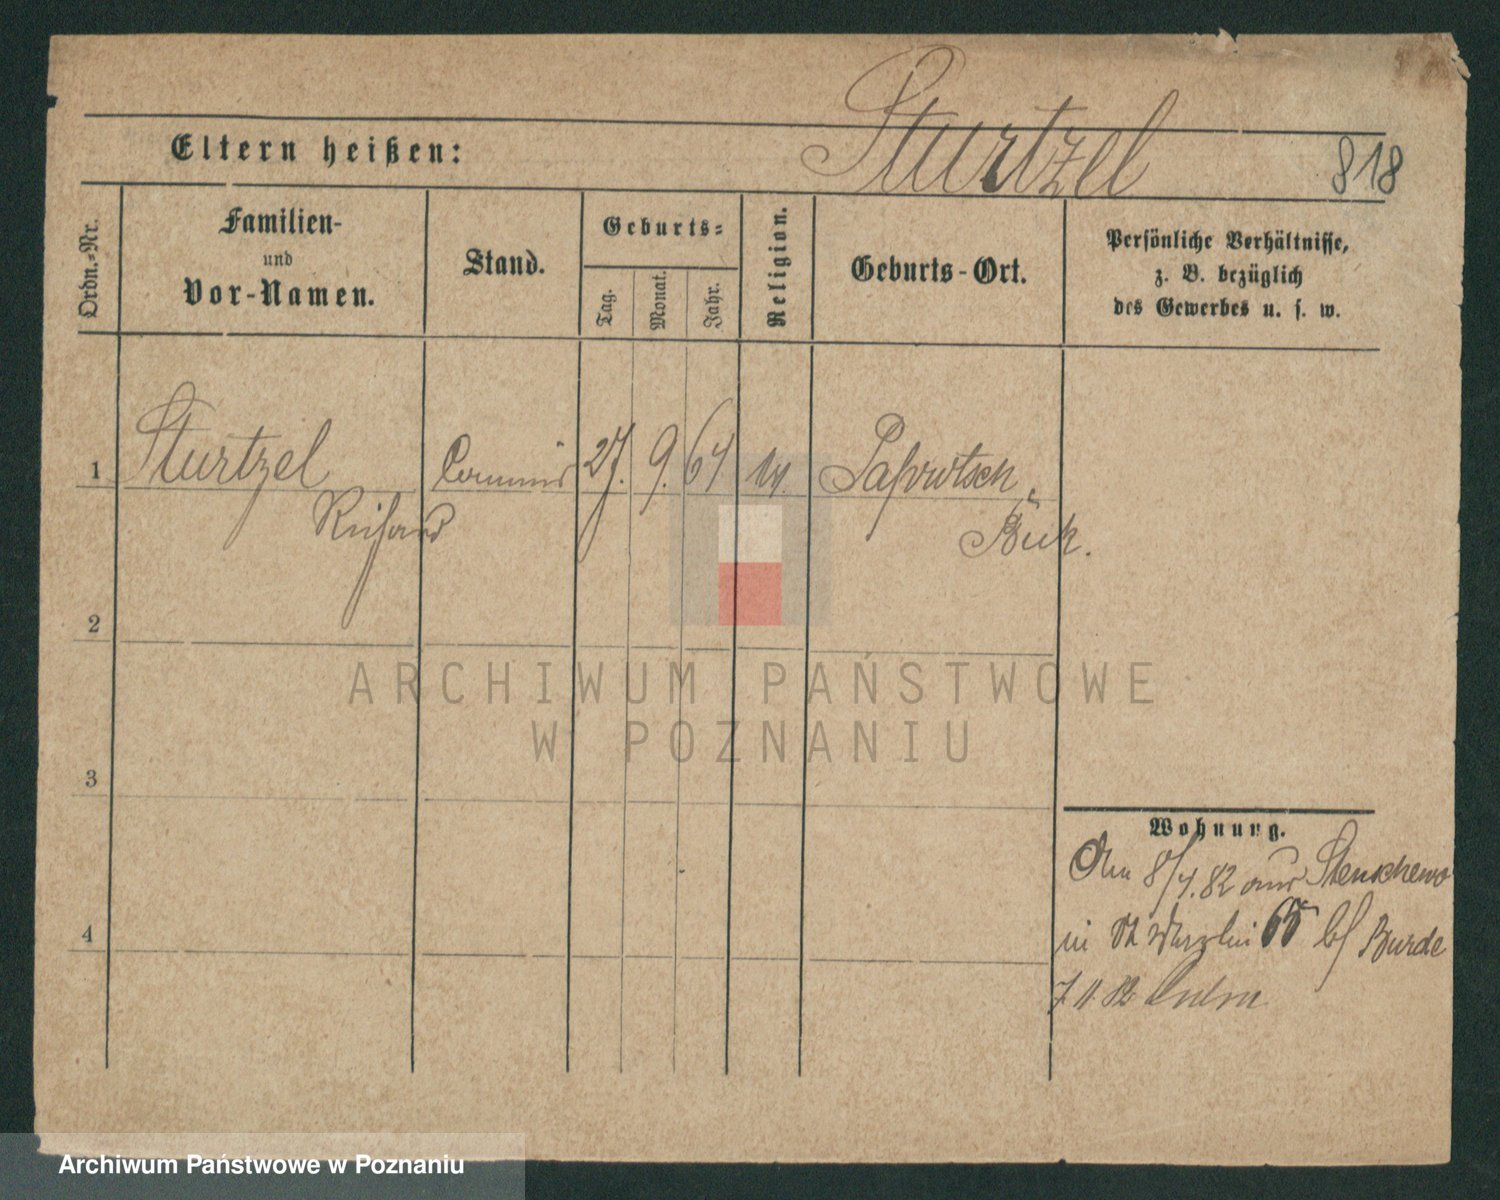 Sturtzel
Eltern heißen:
818
Ordn.-Nr.
Familien-
und
Vor-Namen.
Stand.
Geburts-
Tag.
Monat.
Jahr.
Religion.
Geburts-Ort.
Persönliche Verhältnisse,
z. B. bezüglich
des Gewerbes u. s. w.
1 Sturtzel Commis 27. 9. 64
Richard Buk.
2
ARCHIWUM PAŃSTWOWE
W POZNANIU
3
Wohnung.
8/4.82 aus Stenschewo
4
in St 65 bei Burde
7.11.82
Archiwum Państwowe w Poznaniu